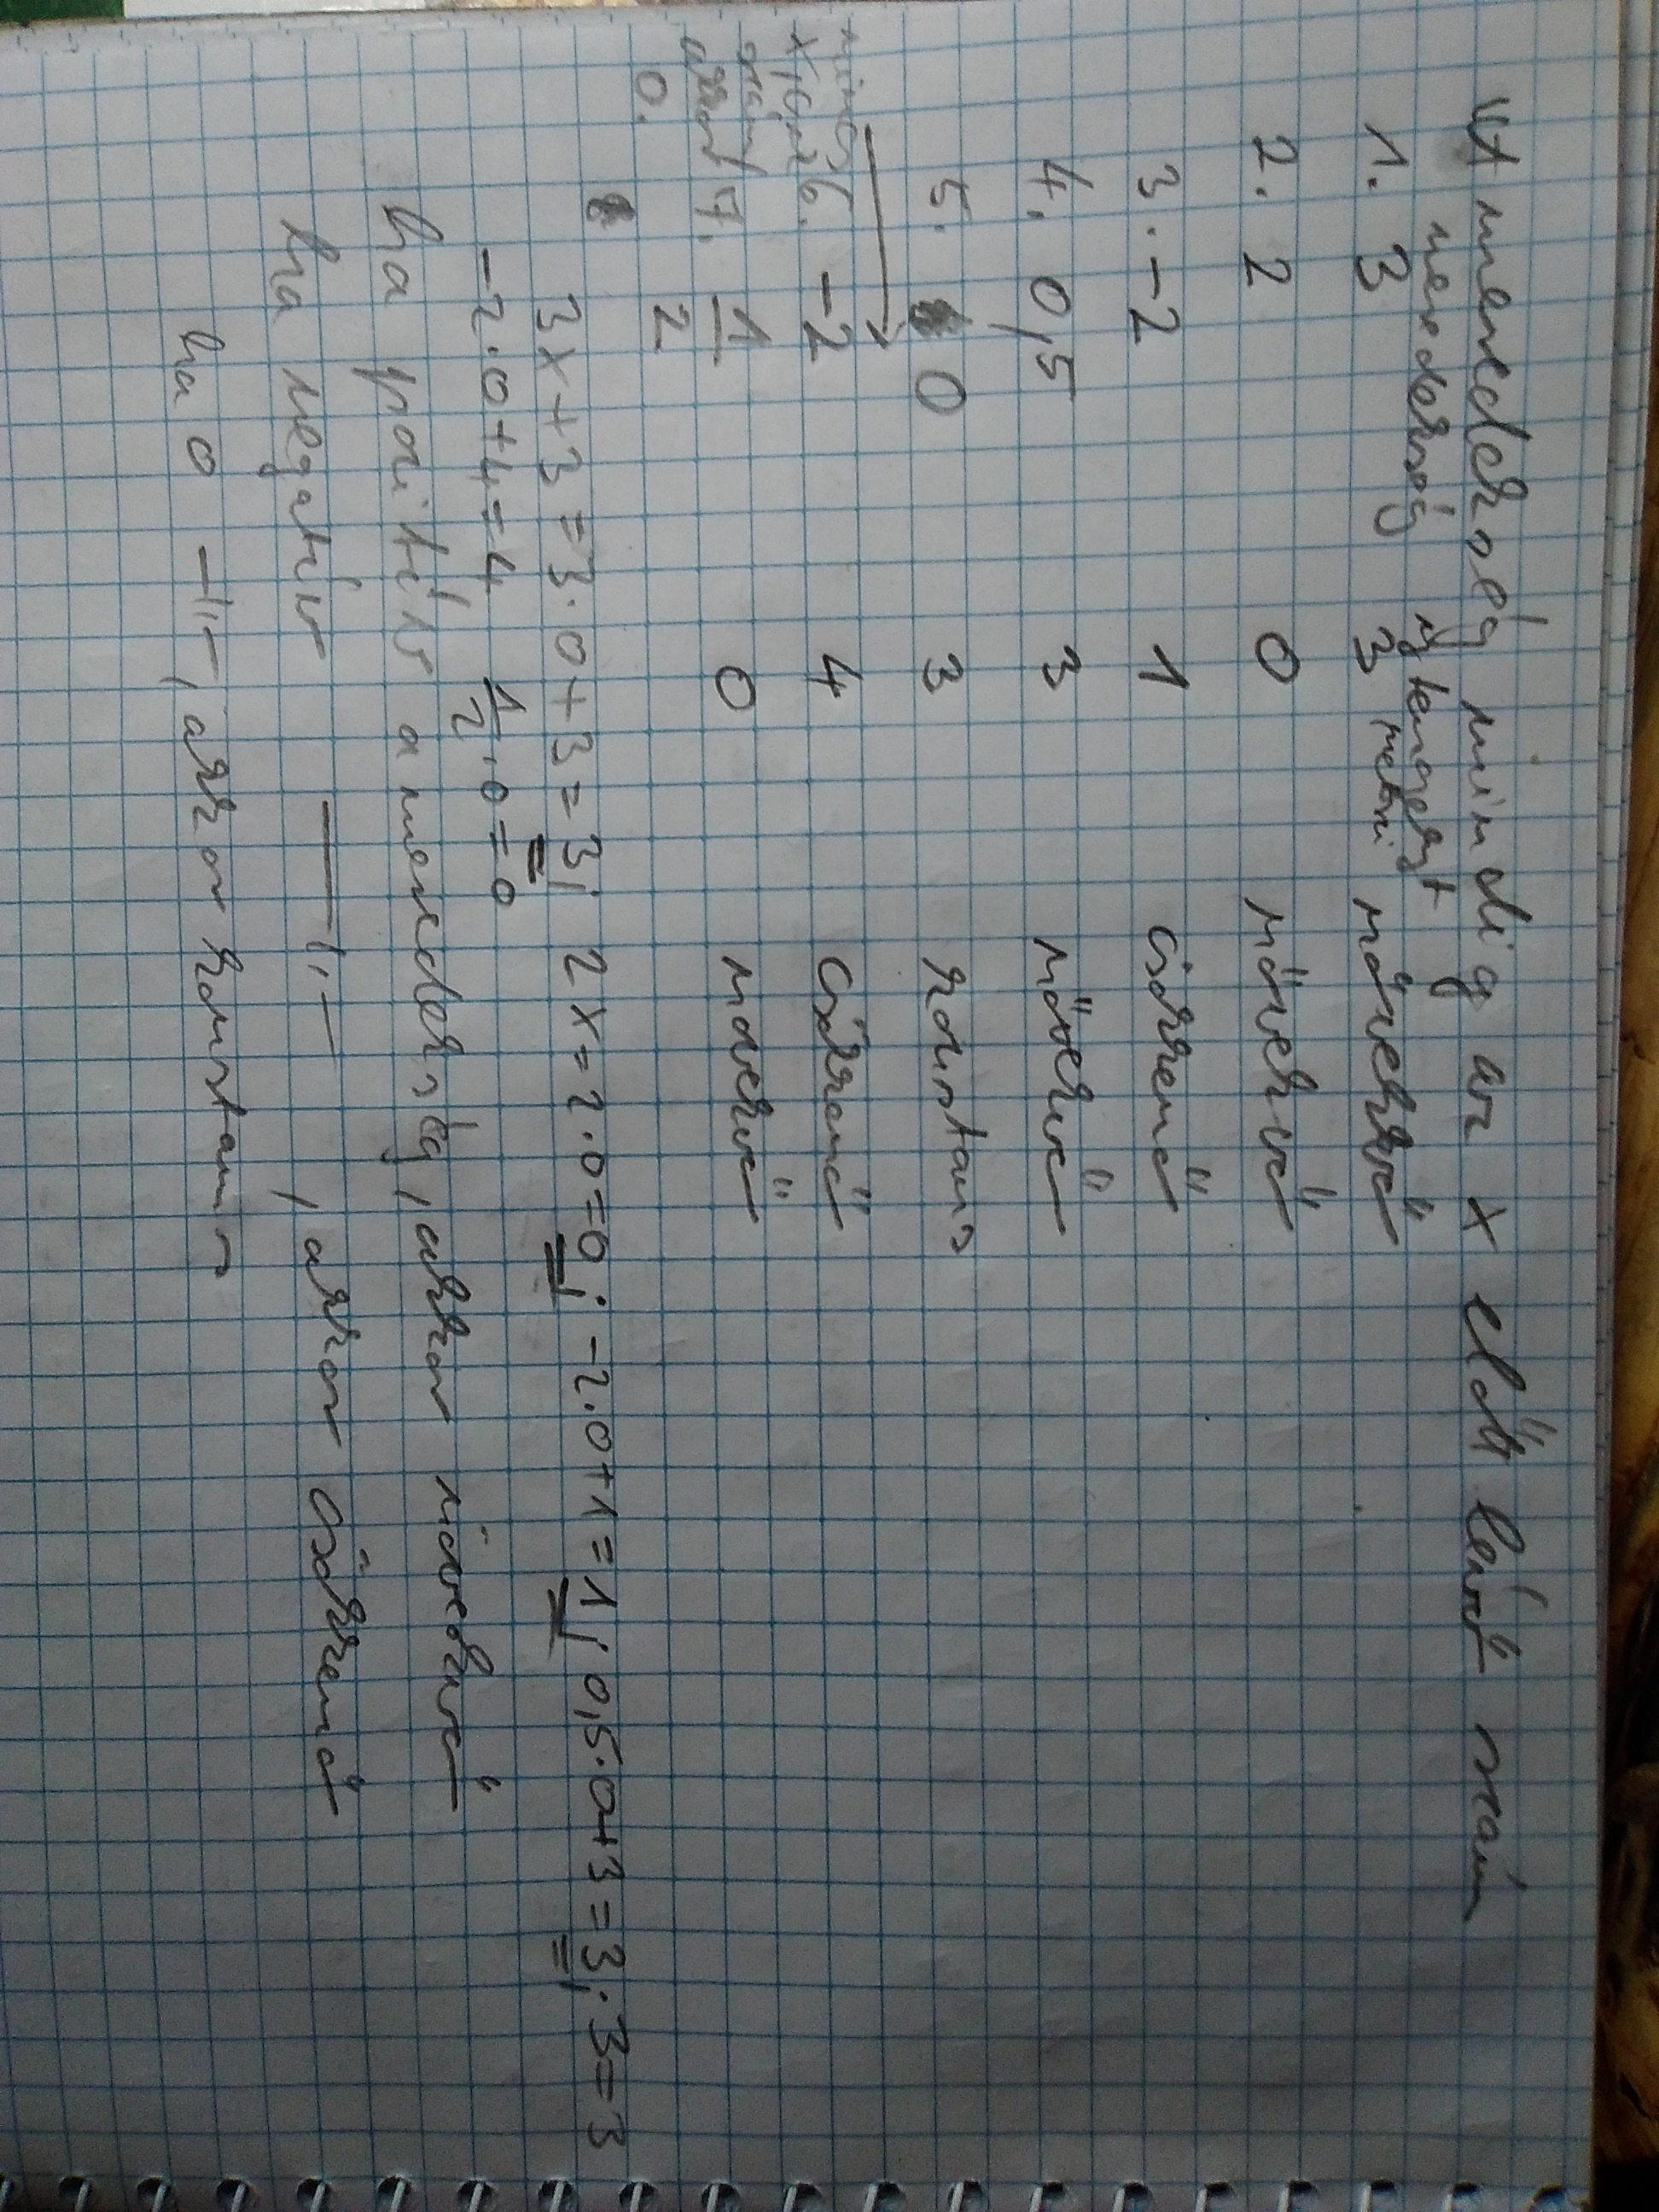 A meredekség mindig az x előtt lévő szám
meredekség y tengelyt
1. 3 3 metszi növekvő
2. 2 0 növekvő
3. -2 1 csökkenő
4. 0,5 3 növekvő
5. 0 3 konstans
nincs x,
szám
akkor
0.
6. -2 4 csökkenő
7. 1/2 0 növekvő
3x+3=3·0+3=3; 2x=2·0=0; -2·0+1=1; 0,5·0+3=3; 3=3
-2·0+4=4 1/2·0=0
ha pozitív a meredekség, akkor növekvő
ha negatív —"—, akkor csökkenő
ha 0 —"—, akkor konstans